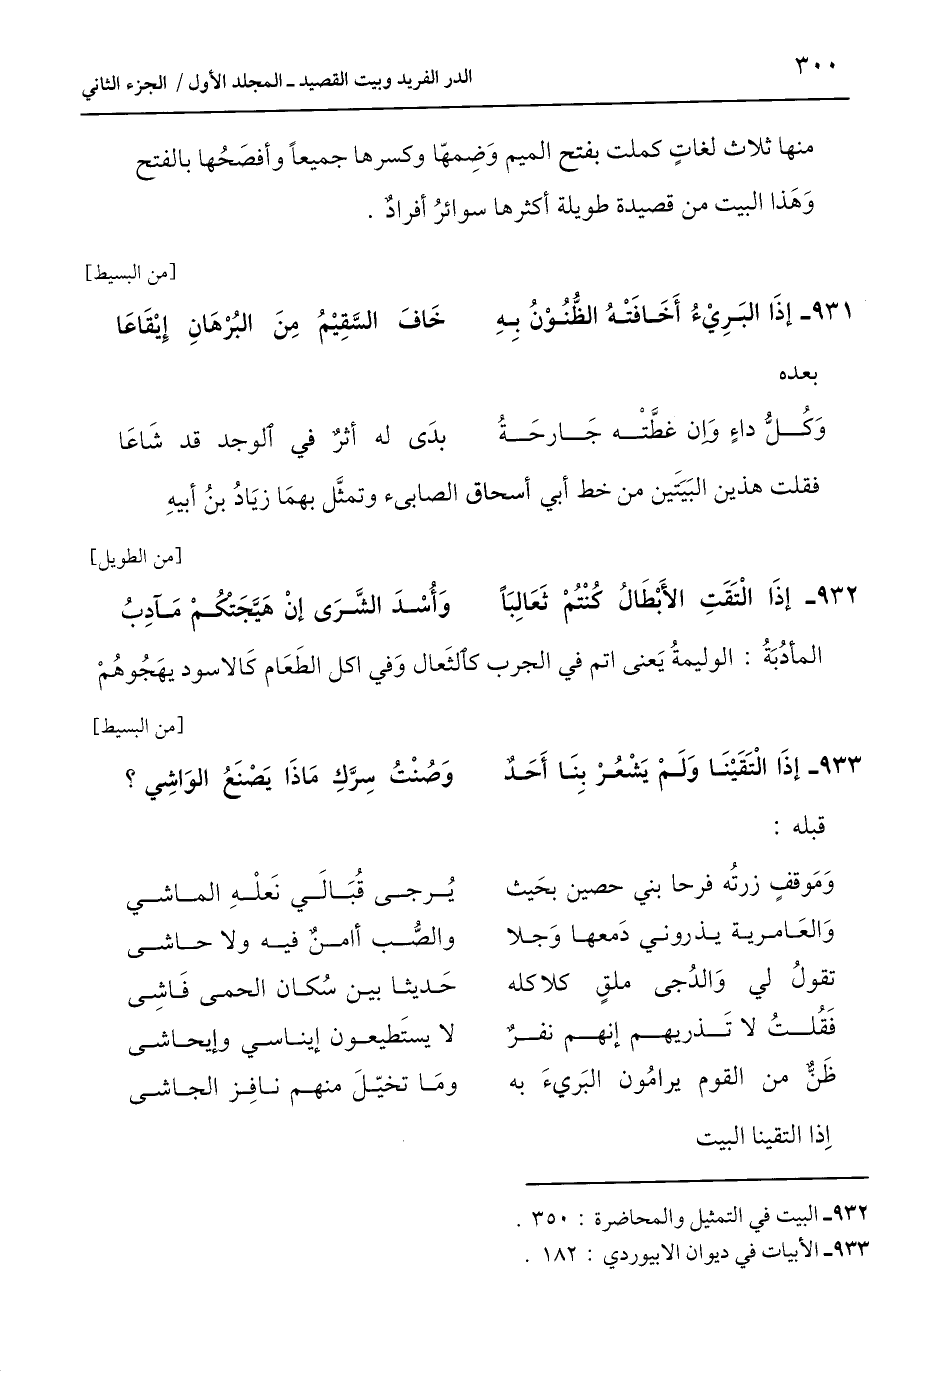 ٣٠٠
الدر الفريد وبيت القصيد ـ المجلد الأول / الجزء الثاني
منها ثلاث لغاتٍ كملت بفتح الميم وَضِمهّا وكسرها جميعاً وأفصَحُها بالفتح
وَهَذا البيت من قصيدة طويلة أكثرها سوائرُ أفرادٌ .
[من البسيط]
٩٣١ـ إذَا البَرِيْءُ أَخَافَتْهُ الظُّنُوْنُ بِهِ خَافَ السَّقِيْمُ مِنَ البُرْهَانِ إيْقَاعَا
بعده
وَكُلُّ داءٍ وَإن غطَّتْه جَارحَةُ بدَى له أثرٌ في ٱلوجد قد شَاعَا
فقلت هذين البيَتَين من خط أبي أسحاق الصابىء وتمثَّل بهمَا زيَادُ بنُ أبيهِ
[من الطويل]
٩٣٢ـ إذَا الْتَقَتِ الأَبْطَالُ كُنْتُمْ ثَعَالِبَاً وَأُسْدَ الشَّرَى إنْ هَيَّجَتْكُمْ مَآدِبُ
المأدُبَةُ : الوليمةُ يَعنى اتم في الجرب كٱلثَعال وَفي اكل الطَعام كَالاسود يهَجُوهُمْ
[من البسيط]
٩٣٣ـ إذَا الْتَقَيْنَا وَلَمْ يَشْعُرْ بِنَا أَحَدٌ وَصُنْتُ سِرَّكِ مَاذَا يَصْنَعُ الوَاشِي ؟
قبله :
وَمَوقفٍ زرتُه فرحا بني حصين بحَيث يُرجى قُبَالَي نَعلْهِ الماشي
وَالعَامرية يذروني دَمعها وَجلا والصُّب أامنٌ فيه ولا حاشى
تقولُ لي وَالدُجى ملقٍ كلاكله حَديثا بين سُكان الحمى فَاشِى
فَقُلتُ لا تَذريهم إنهم نفرٌ لا يستَطيعون إيناسي وإيحاشى
ظَنٌّ من القوم يرامُون البَريءَ به ومَا تخيّلَ منهم نافِز الجاشى
إذا التقينا البيت
٩٣٢ـ البيت في التمثيل والمحاضرة : ٣٥٠ .
٩٣٣ـ الأبيات في ديوان الابيوردي : ١٨٢ .